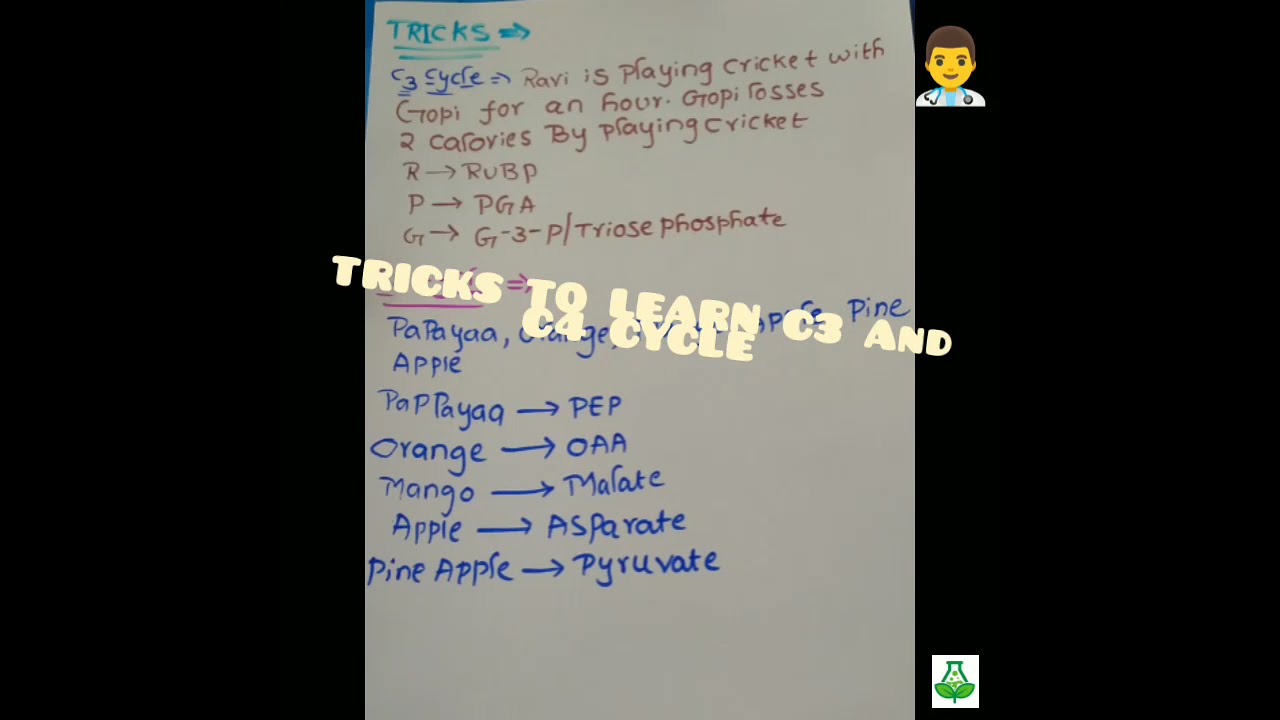 TRICKS ⇒
C3 Cycle ⇒ Ravi is Playing Cricket with
Gopi for an hour. Gopi losses
2 calories By playing cricket
R → RUBP
P → PGA
G → G-3-P/Triose phosphate
⇒
TRICKS TO LEARN C3 AND
C4 CYCLE
PaPayaa, Orange, Pine
Apple
PaPPayaa → PEP
Orange → OAA
Mango → Malate
Apple → ASParate
Pine Apple → Pyruvate